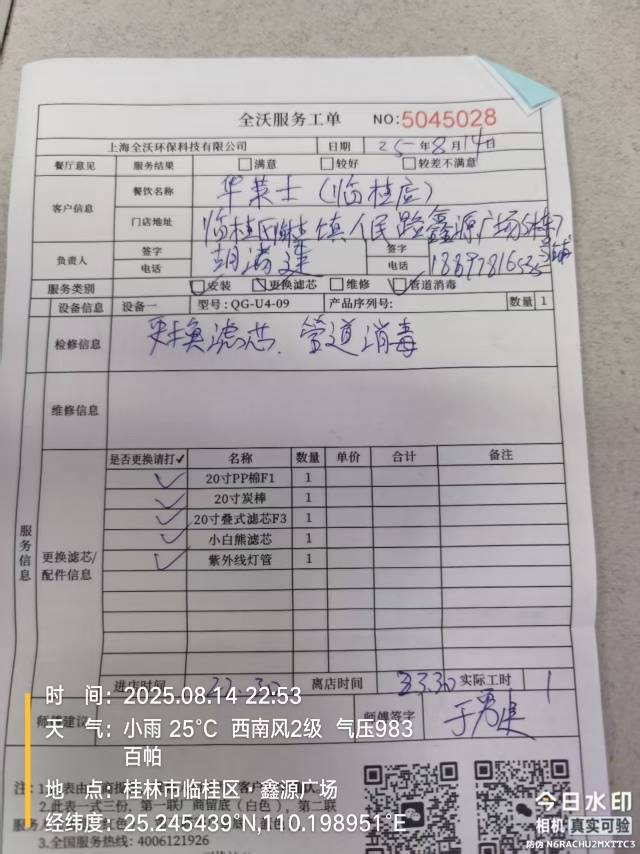 全沃服务工单 NO:5045028
上海全沃环保科技有限公司 日期 25年8月14日
餐厅意见 服务结果 满意 较好 较差不满意
客户信息 餐饮名称 华莱士(临桂店)
门店地址 临桂区临桂镇人民路鑫源广场
负责人 签字 签字
电话 电话
服务类别 安装 更换滤芯 维修 管道消毒
设备信息 设备一 型号:QG-U4-09 产品序列号: 数量 1
检修信息 更换滤芯、管道消毒
维修信息
服务信息
更换滤芯/配件信息
是否更换请打✓ 名称 数量 单价 合计 备注
✓ 20寸PP棉F1 1
✓ 20寸炭棒 1
✓ 20寸叠式滤芯F3 1
✓ 小白熊滤芯 1
✓ 紫外线灯管 1
进店时间 22.30 离店时间 23.30 实际工时 1
师傅建议 师傅签字
时 间:2025.08.14 22:53
天 气:小雨 25℃ 西南风2级 气压983百帕
地 点:桂林市临桂区·鑫源广场
经纬度:25.245439°N,110.198951°E
2.此表一式三份,第一联厂商留底(白色),第二联
3.全国服务热线:4006121926
今日水印
相机 真实可验
防伪 N6RACHU2MXTTC3